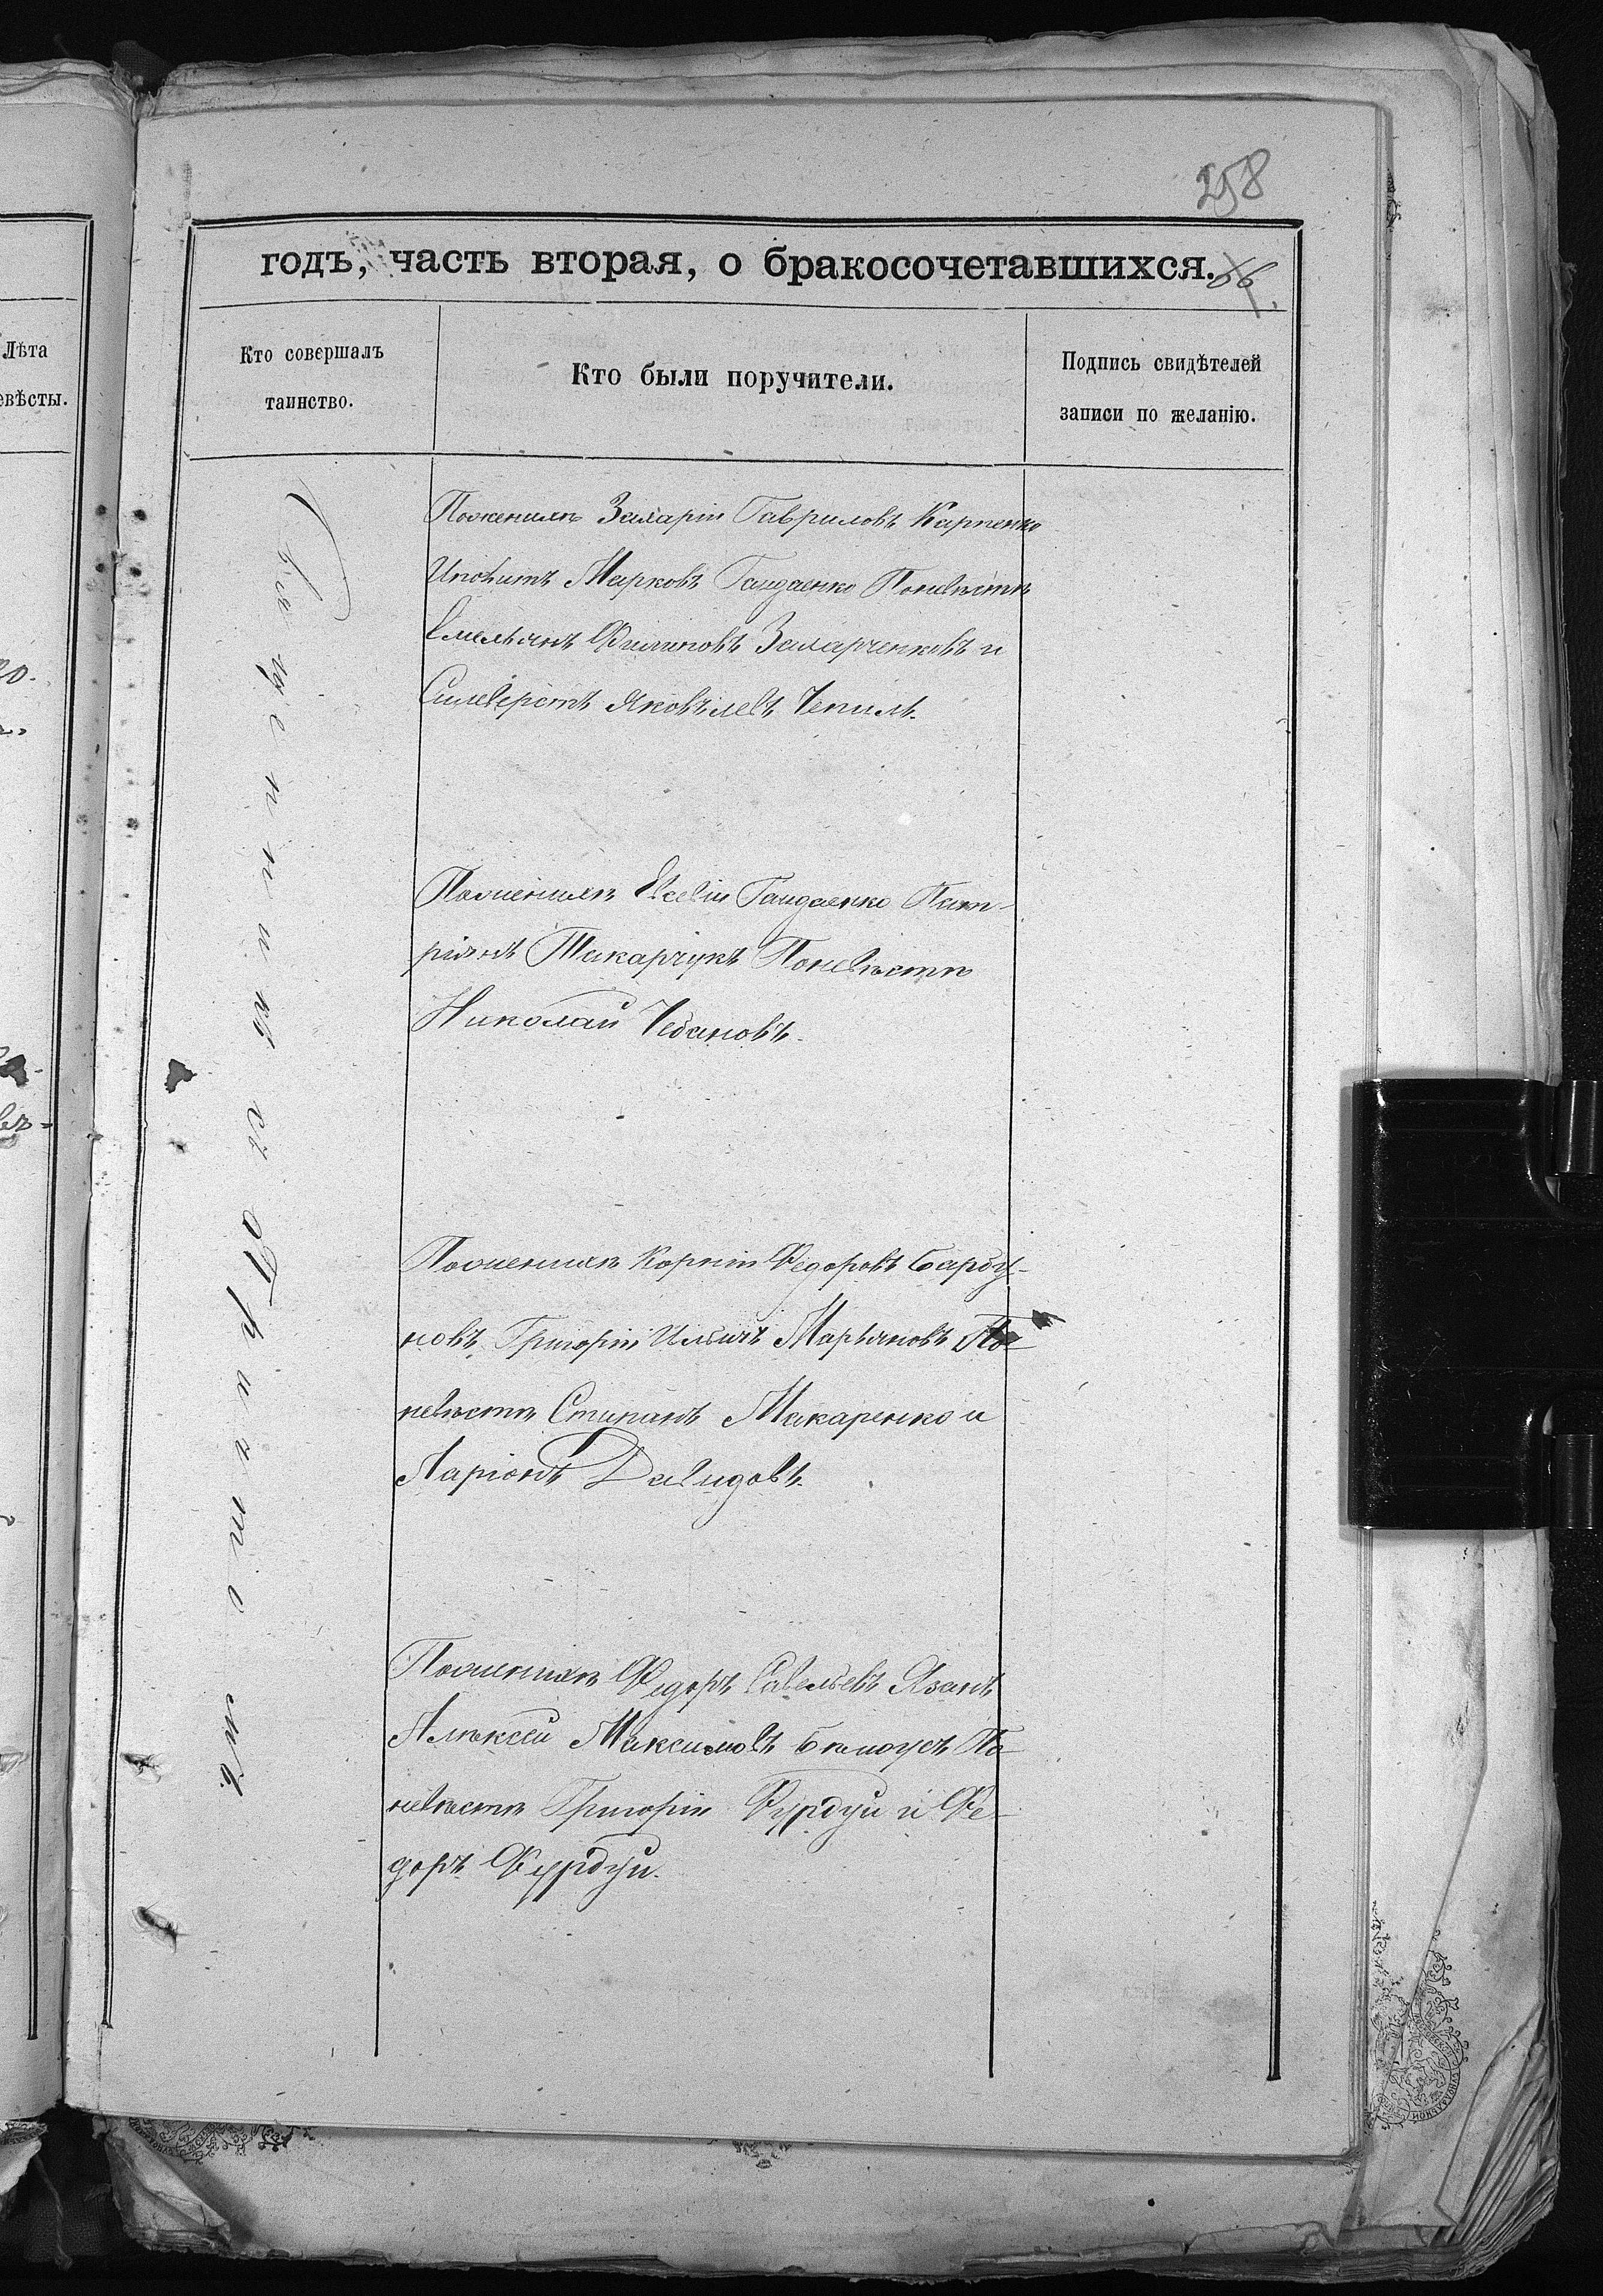 258
годъ, часть вторая, о бракосочетавшихся.
66
Лѣта
евѣсты.
Кто совершалъ
таинство.
Кто были поручители.
Подпись свидѣтелей
записи по желанію.
Священникъ
Поженихѣ Захарій Гавриловъ Карпенко
Ипатъ Марковъ Гайдаенко Поневѣстѣ
Емельянъ Филиповъ Захарченковъ и
Силверстъ Яковлевъ Чепиль.
Поженихѣ Евсевій Гайдаенко Пат-
ріанъ Токарчукъ Поневѣстѣ
Николай Чебановъ.
Поженихѣ Корній Федоровъ Барбу-
новъ Григорій Ильичъ Марьяновъ По-
невѣстѣ Стипанъ Макаренко и
Ларіонъ Давидовъ.
Поженихѣ Федоръ Савельевъ Язанъ
Алѣксей Максимовъ Бѣлоусъ По-
невѣстѣ Григорій Фурдуй и Фе-
доръ Фурдуй.